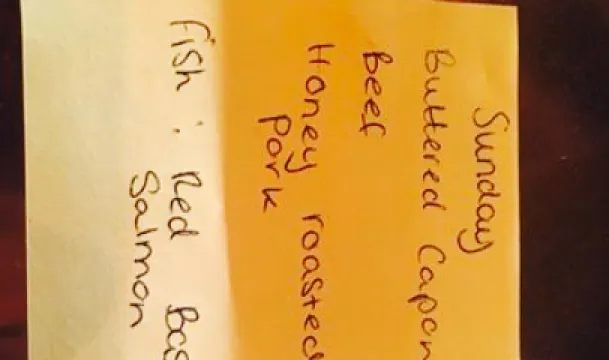 Sunday
Buttered Capon
Beef
Honey roasted
Pork
Fish : Red Bas
Salmon